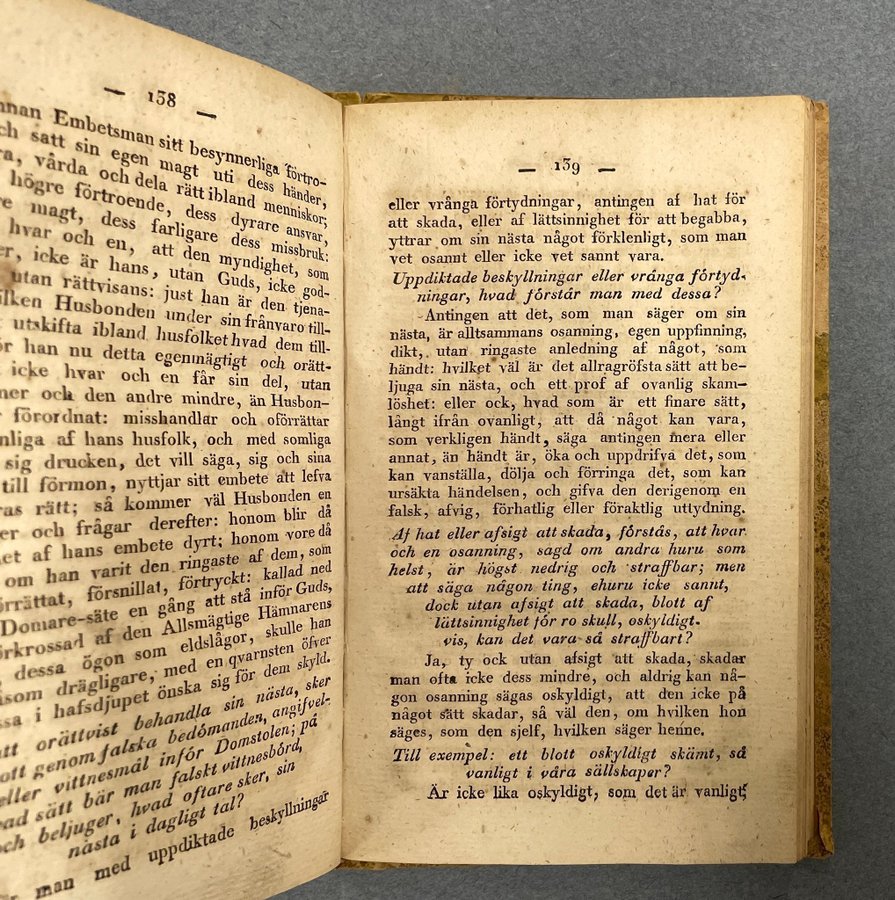 — 138 —
Embetsman sitt besynnerliga förtro-
satt sin egen magt uti dess händer,
vårda och dela rätt ibland menniskor;
högre förtroende, dess dyrare ansvar,
magt, dess farligare dess missbruk:
hvar och en, att den myndighet, som
icke är hans, utan Guds, icke god-
utan rättvisans: just han är den tjena-
Husbonden under sin frånvaro till-
utskifta ibland husfolket hvad dem till-
han nu detta egenmägtigt och orätt-
icke hvar och en får sin del, utan
och den andre mindre, än Husbon-
förordnat: misshandlar och oförrättar
af hans husfolk, och med somliga
sig drucken, det vill säga, sig och sina
till förmon, nyttjar sitt embete att lefva
rätt; så kommer väl Husbonden en
och frågar derefter: honom blir då
af hans embete dyrt; honom vore då
om han varit den ringaste af dem, som
försnillat, förtryckt: kallad ned
Domare-säte en gång att stå inför Guds,
af den Allsmägtige Hämnarens
dessa ögon som eldslågor, skulle han
drägligare, med en qvarnsten öfver
i hafsdjupet önska sig för dem skyld.
orättvist behandla sin nästa, sker
genom falska bedömanden, angifvel-
eller vittnesmål inför Domstolen; på
sätt bär man falskt vittnesbörd,
och beljuger, hvad oftare sker, sin
nästa i dagligt tal?
man med uppdiktade beskyllningar
— 139 —
eller vrånga förtydningar, antingen af hat för
att skada, eller af lättsinnighet för att begabba,
yttrar om sin nästa något förklenligt, som man
vet osannt eller icke vet sannt vara.
Uppdiktade beskyllningar eller vrånga förtyd-
ningar, hvad förstår man med dessa?
Antingen att det, som man säger om sin
nästa, är alltsammans osanning, egen uppfinning,
dikt, utan ringaste anledning af något, som
händt: hvilket väl är det allragröfsta sätt att be-
ljuga sin nästa, och ett prof af ovanlig skam-
löshet: eller ock, hvad som är ett finare sätt,
långt ifrån ovanligt, att då något kan vara,
som verkligen händt, säga antingen mera eller
annat, än händt är, öka och uppdrifva det, som
kan vanställa, dölja och förringa det, som kan
ursäkta händelsen, och gifva den derigenom en
falsk, afvig, förhatlig eller föraktlig uttydning.
Af hat eller afsigt att skada, förstås, att hvar
och en osanning, sagd om andra huru som
helst, är högst nedrig och straffbar; men
att säga någon ting, ehuru icke sannt,
dock utan afsigt att skada, blott af
lättsinnighet för ro skull, oskyldigt-
vis, kan det vara så straffbart?
Ja, ty ock utan afsigt att skada, skadar
man ofta icke dess mindre, och aldrig kan nå-
gon osanning sägas oskyldigt, att den icke på
något sätt skadar, så väl den, om hvilken hon
säges, som den sjelf, hvilken säger henne.
Till exempel: ett blott oskyldigt skämt, så
vanligt i våra sällskaper?
Är icke lika oskyldigt, som det är vanligt;